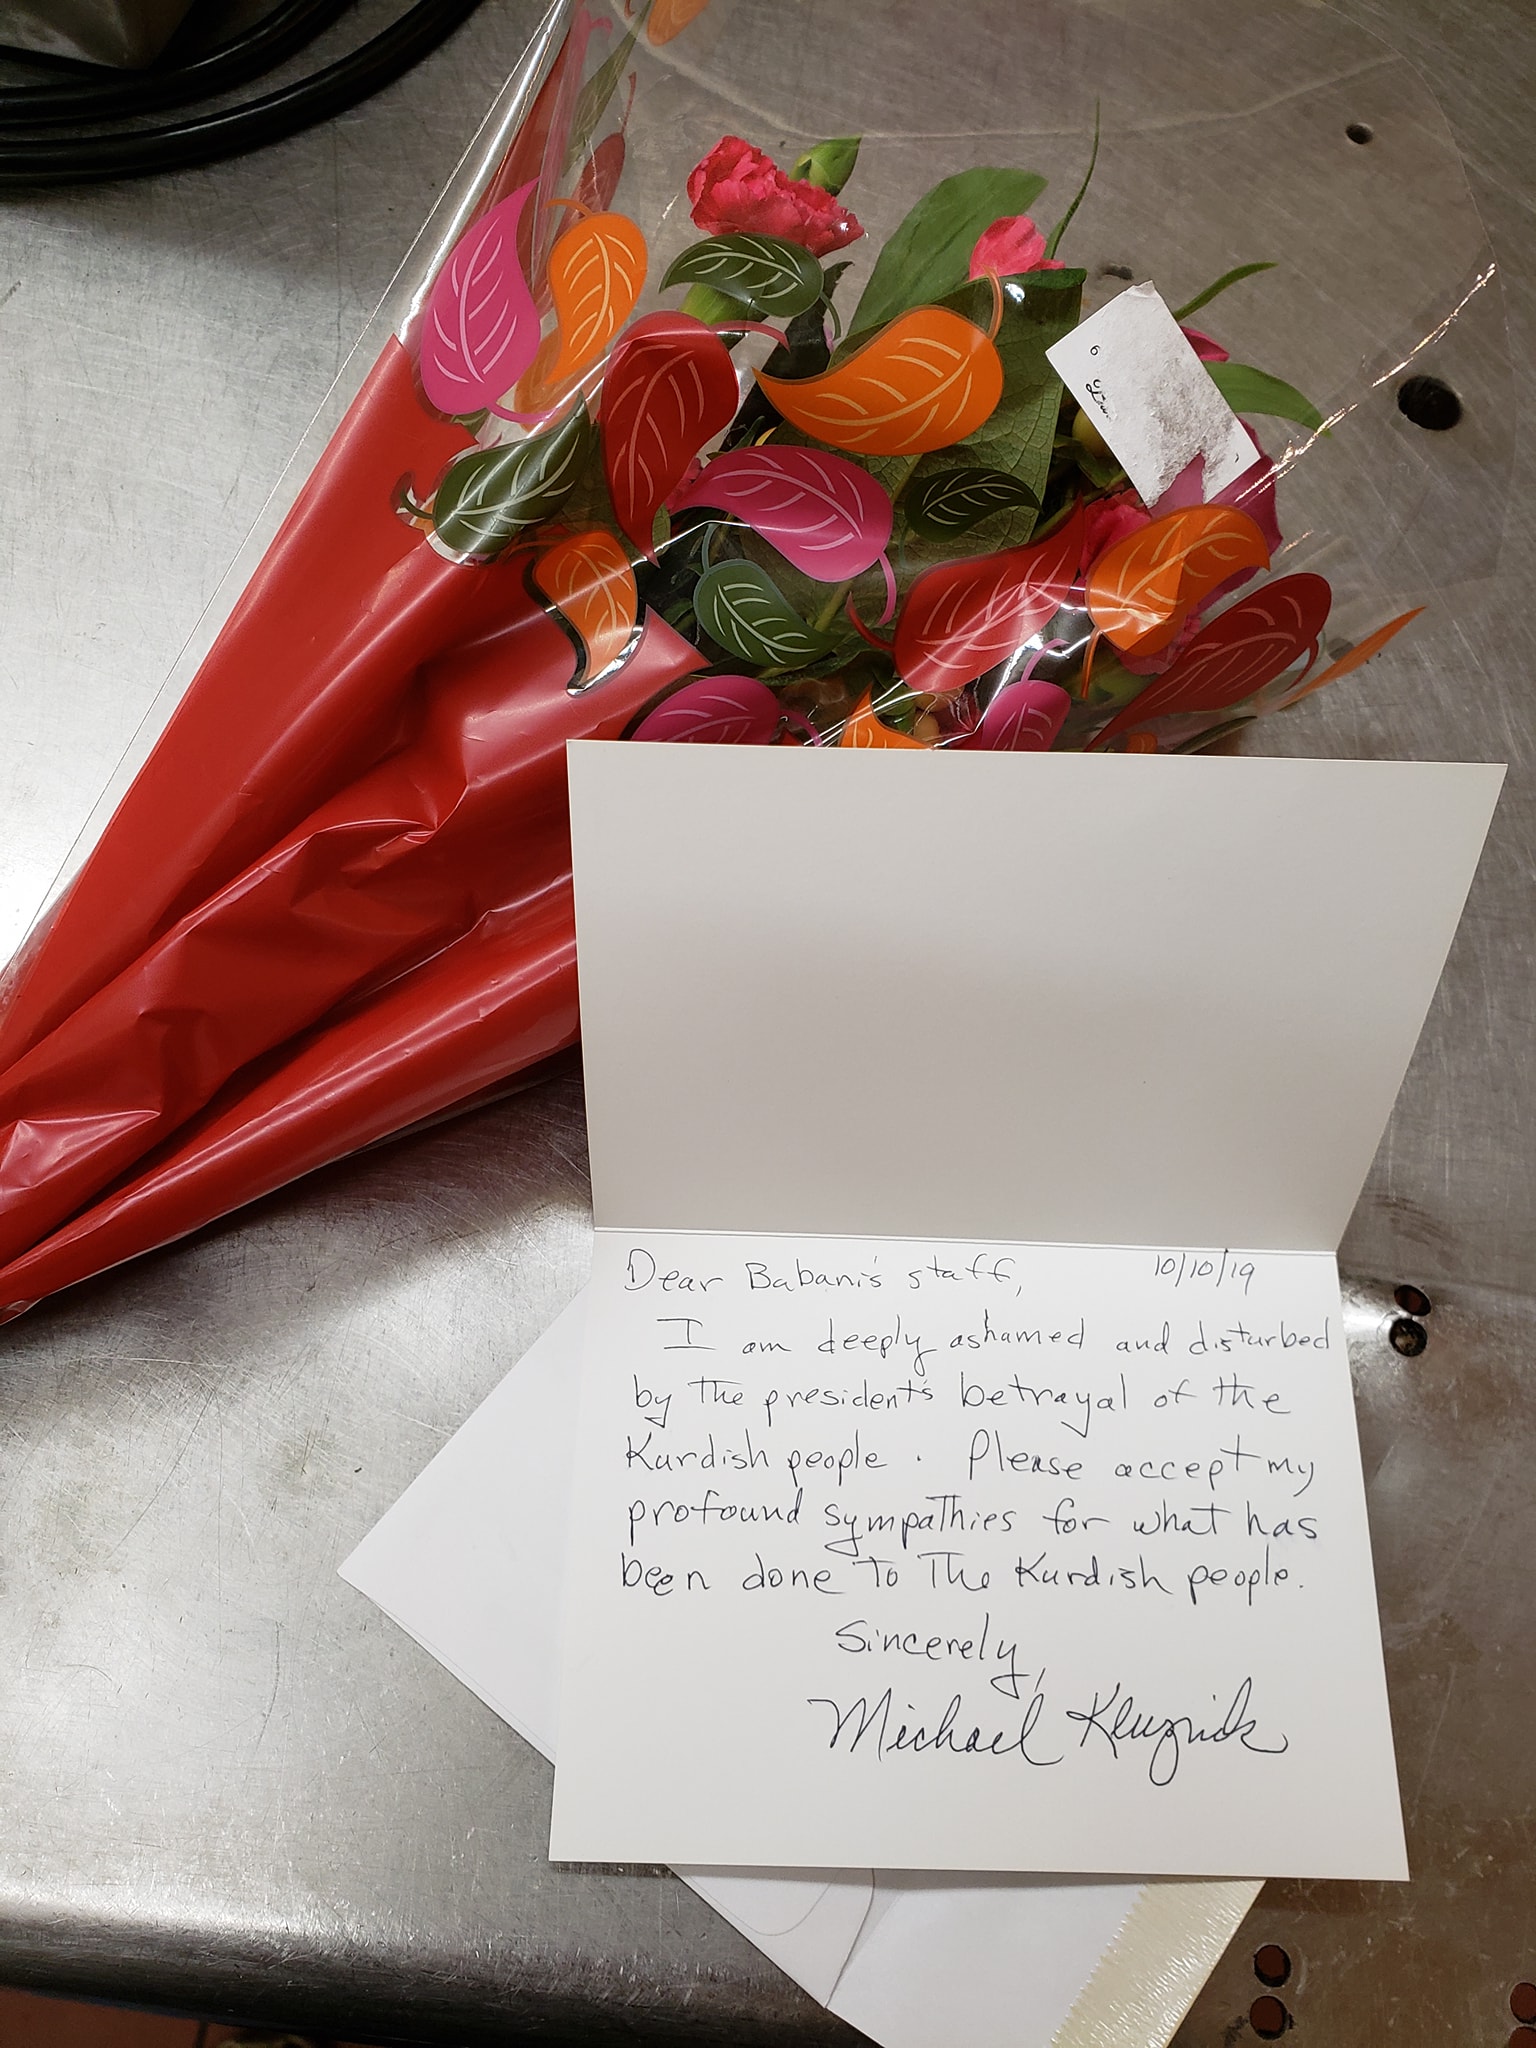 Dear Babani's staff, 10/10/19
I am deeply ashamed and disturbed
by the president's betrayal of the
Kurdish people. Please accept my
profound sympathies for what has
been done to the Kurdish people.
Sincerely,
Michael Kluznik